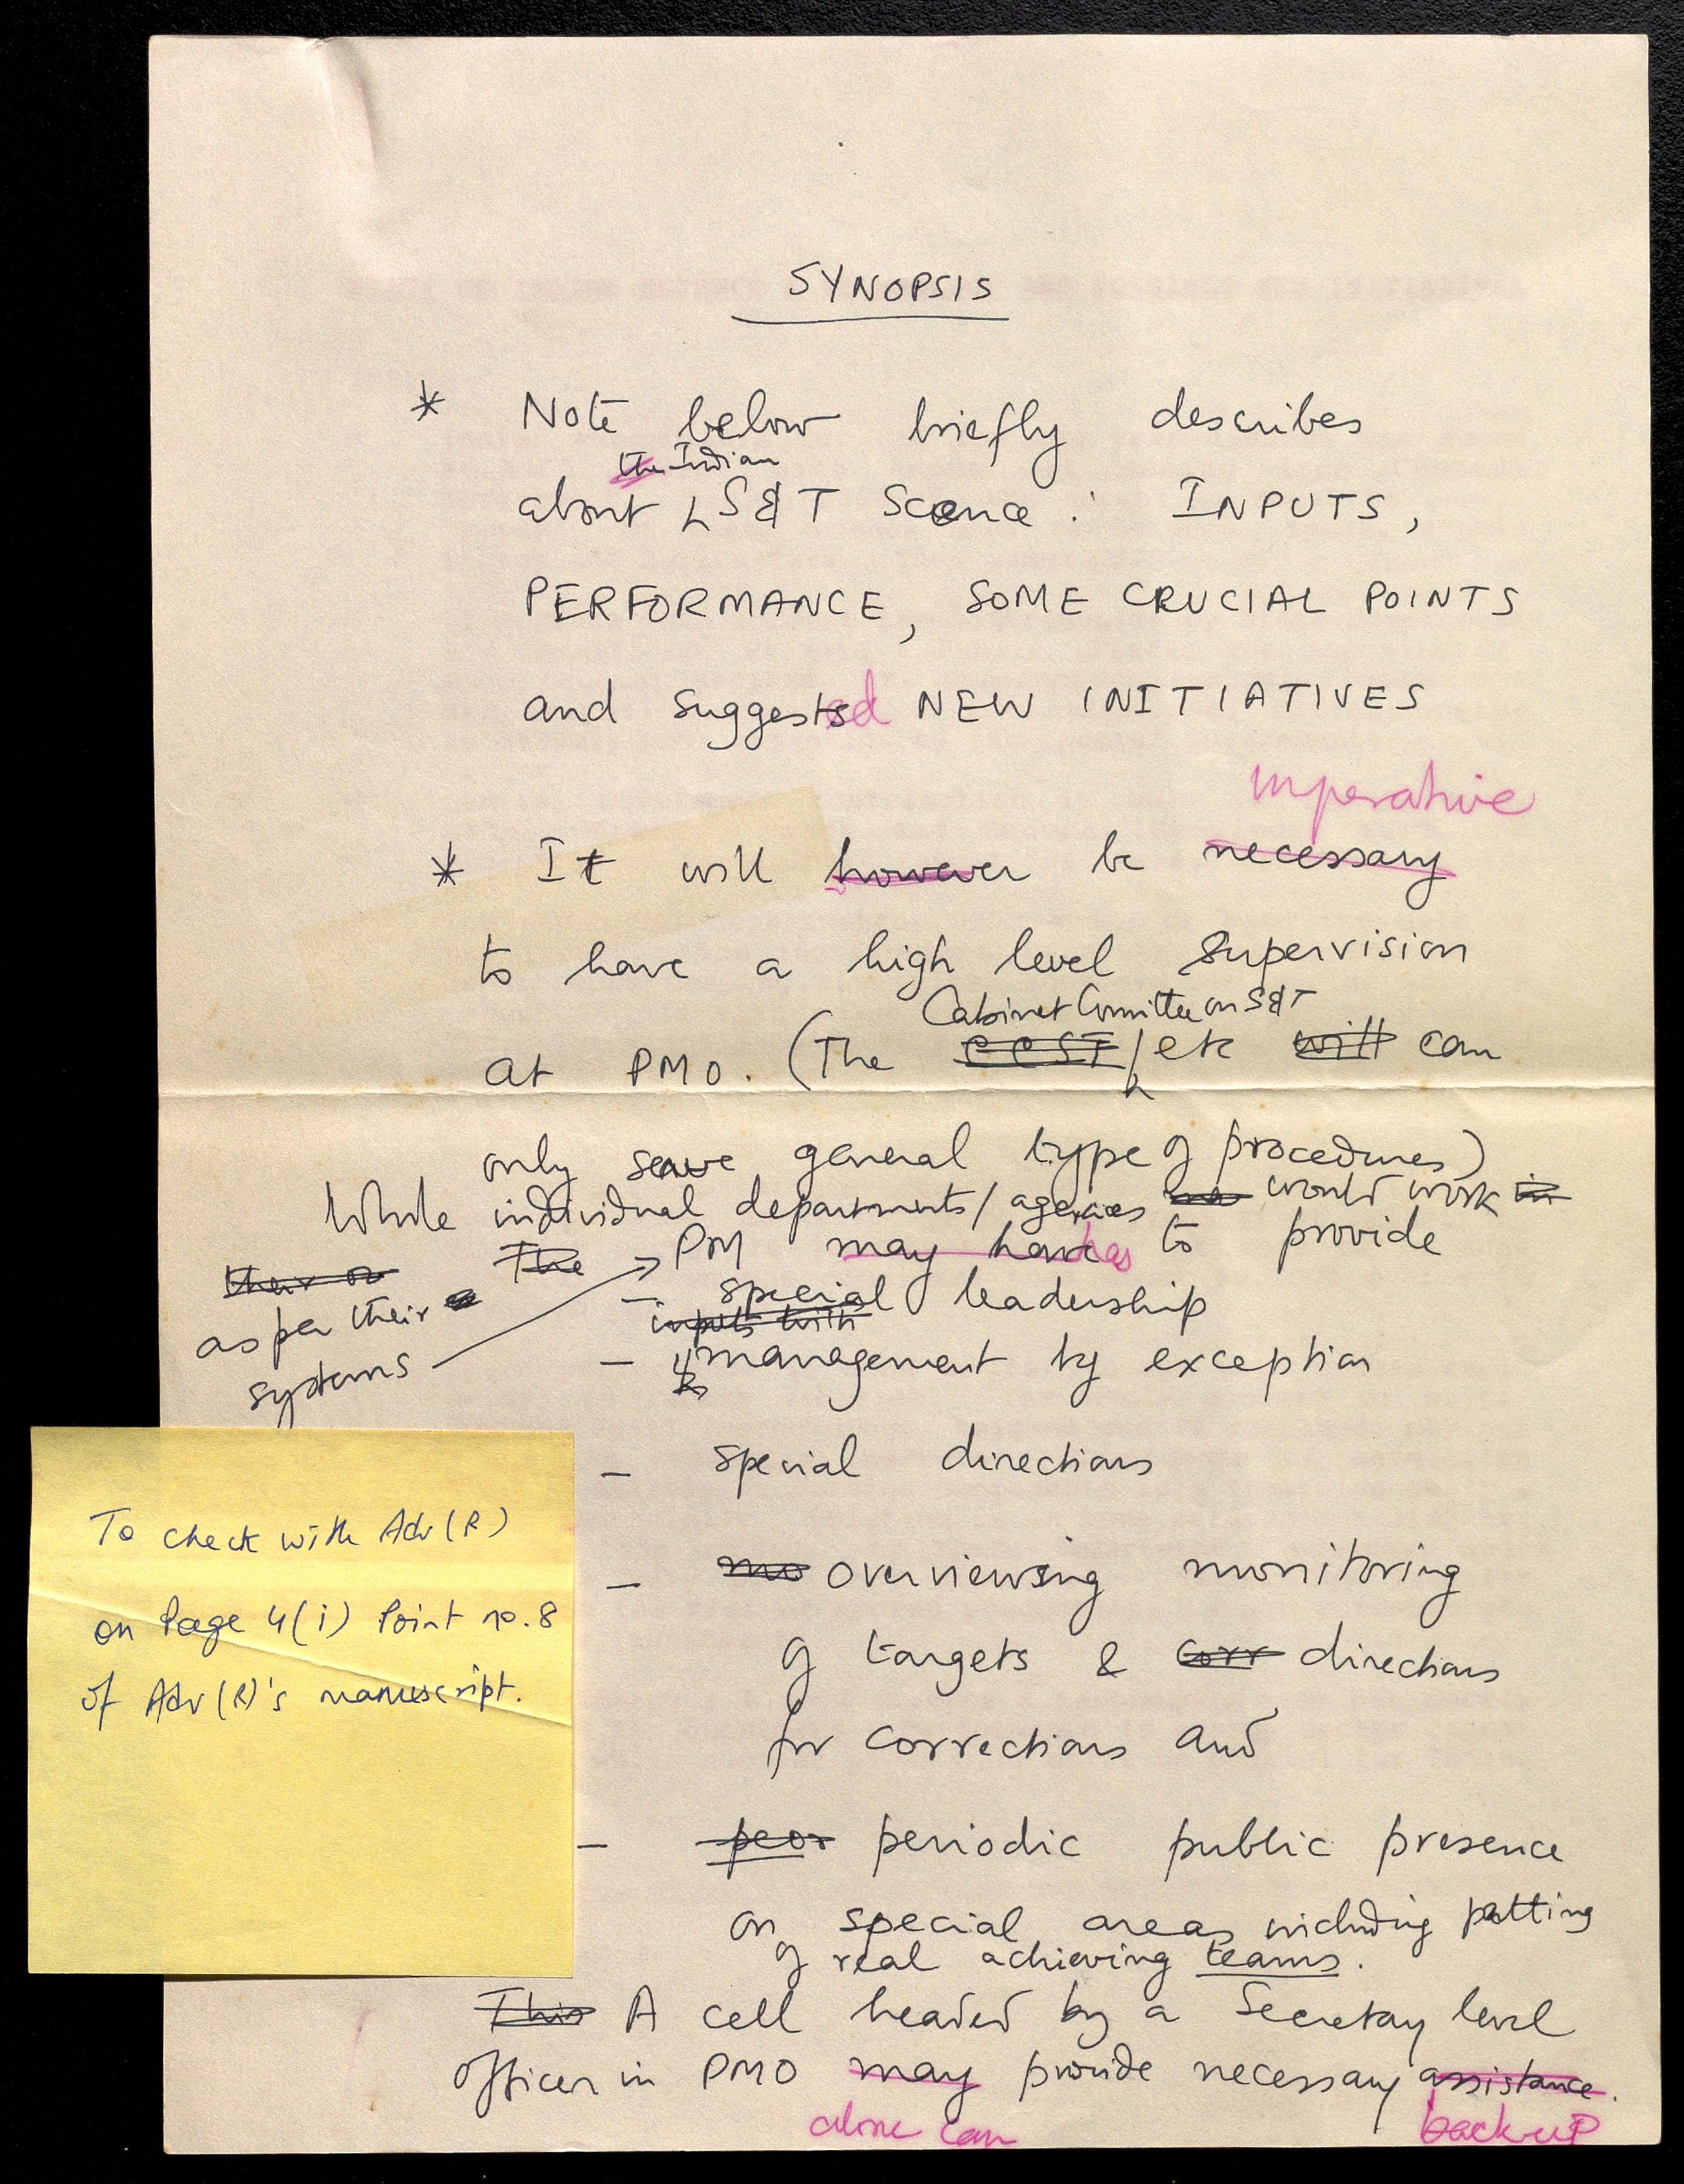 SYNOPSIS
* Note below briefly describes
the Indian
about S&T Scene : INPUTS,
PERFORMANCE, SOME CRUCIAL POINTS
and suggested NEW INITIATIVES
imperative
* It will however be necessary
to have a high level supervision
Cabinet Committee on S&T
at PMO. (The CCST / etc will can
only serve general type of procedures)
While individual departments / agencies would work in
their
as per their
systems
The PM may have has to provide
- special leadership
inputs with
- management by exception
- special directions
- mo overviewing monitoring
of targets & corr directions
for corrections and
- peor periodic public presence
on special areas including patting
of real achieving teams.
This A cell headed by a Secretary level
officer in PMO may provide necessary assistance.
alone can backup
To check with Adv (R)
on Page 4(i) Point no. 8
of Adv (R)'s manuscript.